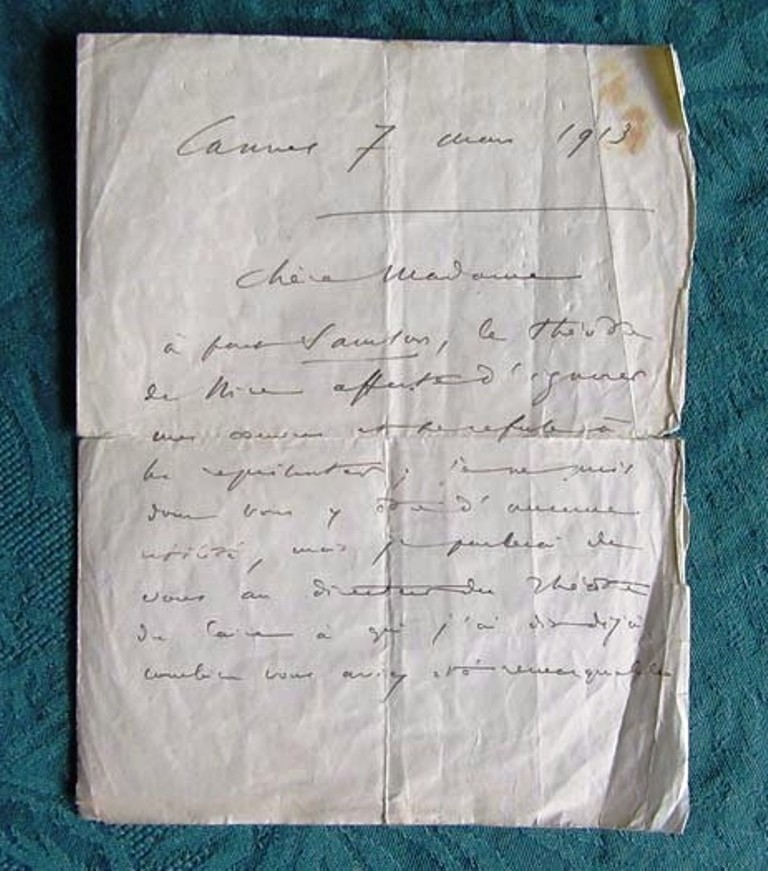 Cannes 7 mars 1913
Chère Madame
à part Samson, le théâtre
de Nice affecte d'ignorer
mes œuvres et se refuse à
les représenter ; je ne puis
donc vous y être d'aucune
utilité, mais je parlerai de
vous au directeur du Théâtre
du Caire à qui j'ai dit déjà
combien vous aviez été remarquable